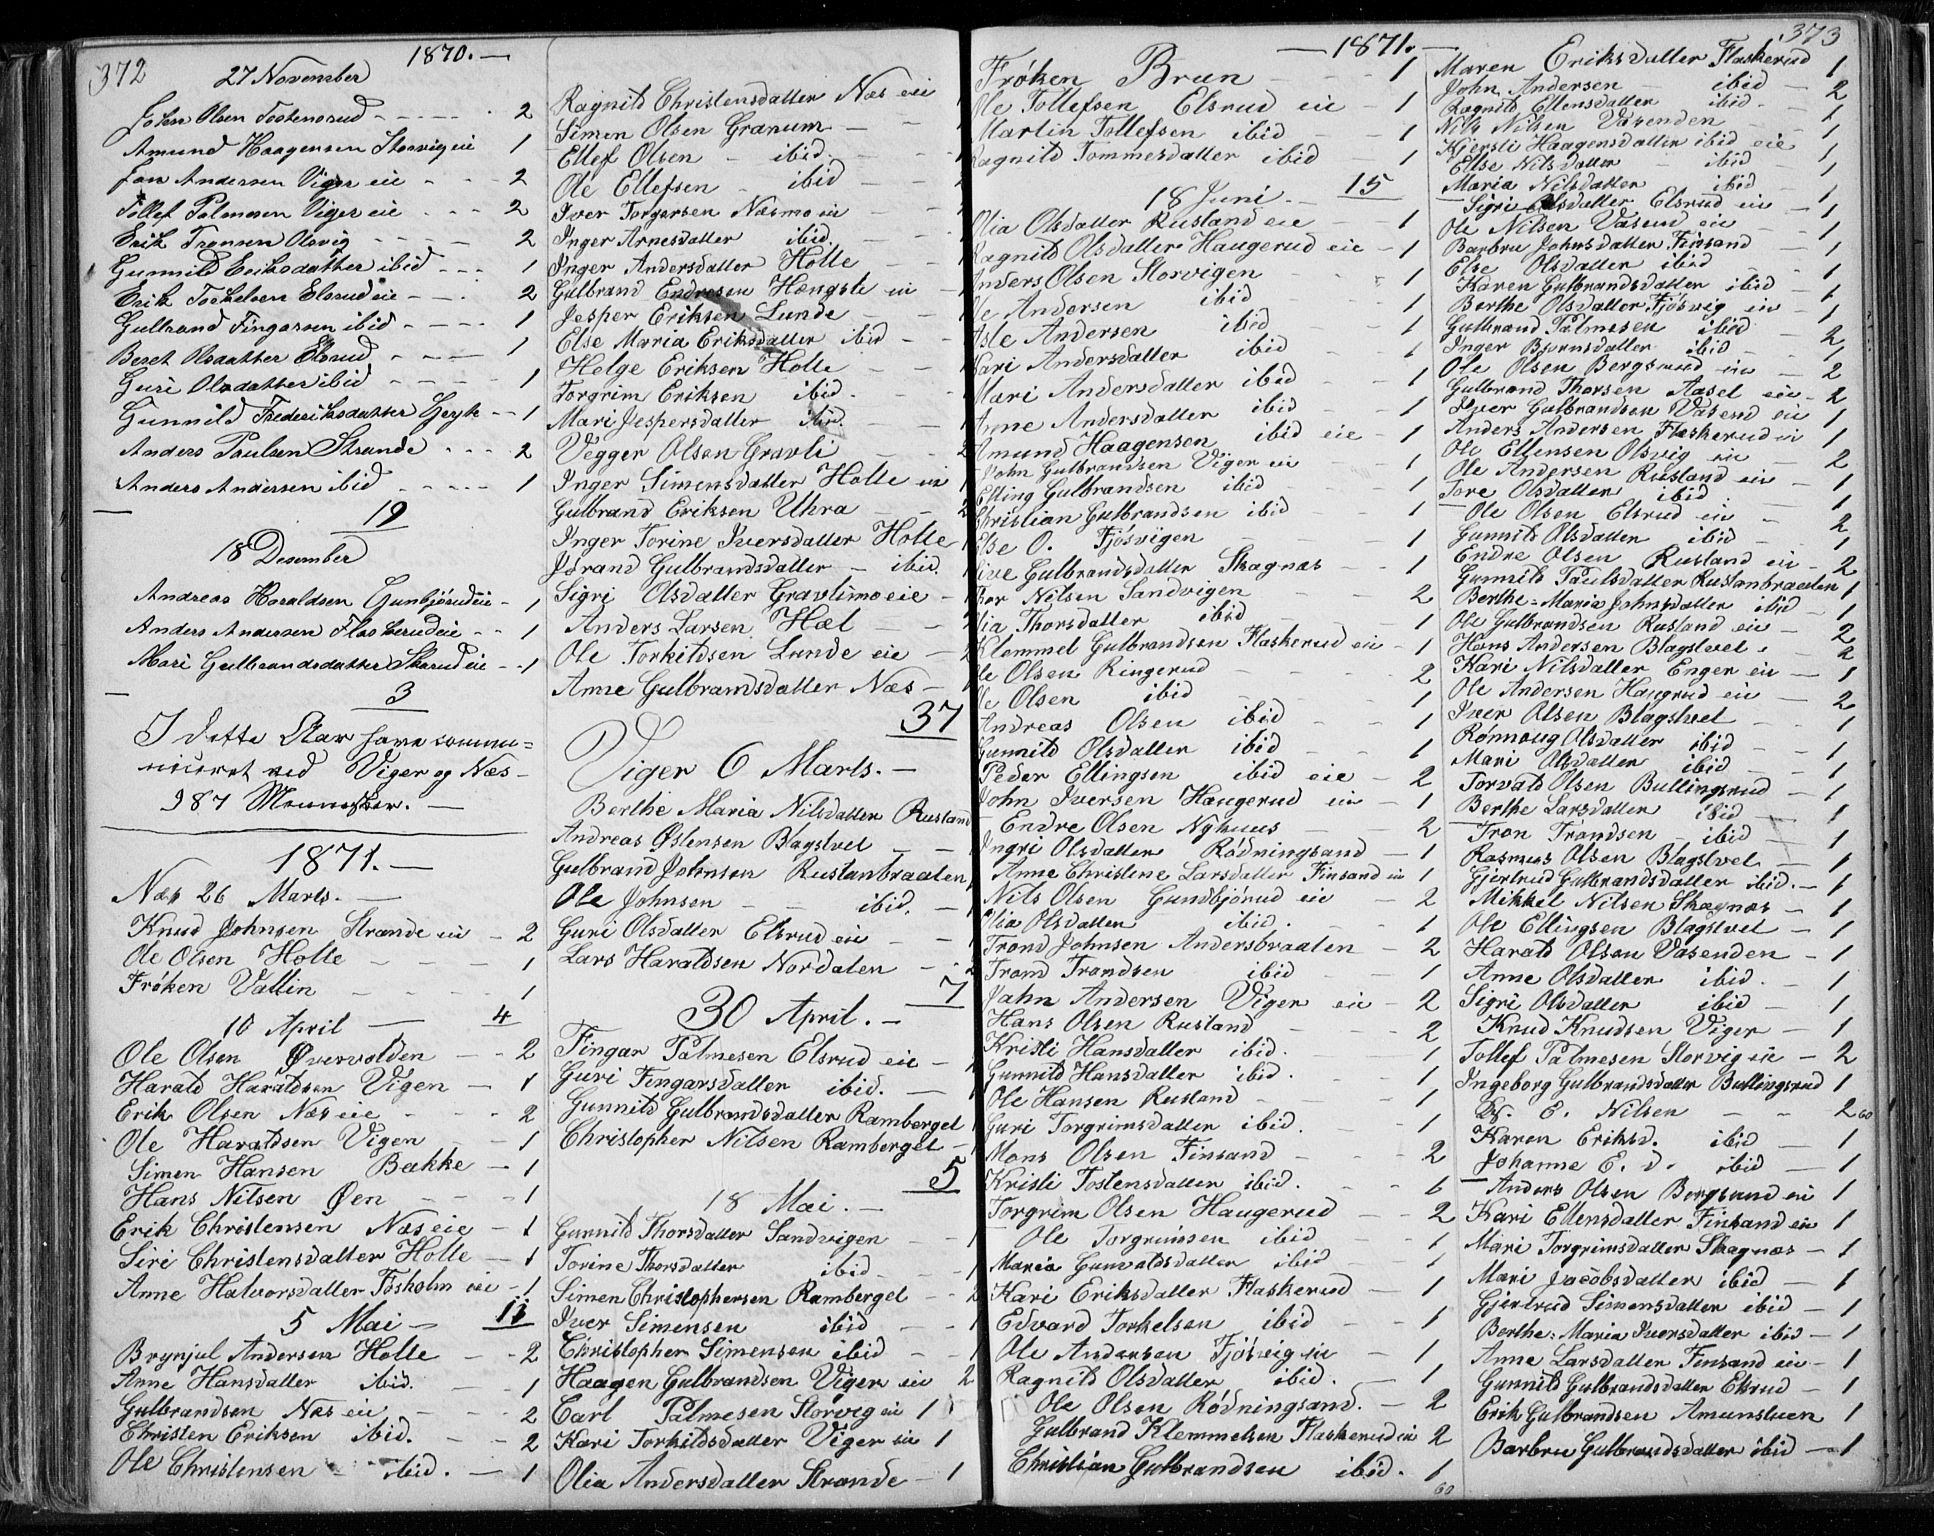 372
1870.—
27 November
Johan Olsen Tostensrud - - - - - 2
Amund Haagensen Storvig eie 1
Jon Andersen Viger eie - - - 2
Tollef Palmesen Viger eie - - - 2
Erik Tronsen Olsvig - - - - 2
Gunnild Eriksdatter ibid - - - 1
Erik Torkelsen Elsrud eie - - - 2
Gulbrand Fingarsen ibid - - - - 1
Beret Olsdatter Elsrud - - - - 1
Guri Olsdatter ibid - - - - - 1
Gunnild Frederiksdatter - - 1
Anders Paulsen Strande - - - 2
Anders Andersen ibid - - - - - 1
19
18 Desember
Andreas Haraldsen Gunbjørud eie - 1
Anders Andersen Flaskerud eie - - 1
Mari Gulbrandsdatter Skarud eie - - 1
3
I dette Aar have commu=
niceret ved Viger og Næs -
987 Mennesker. —
1871. —
Næs 26 Marts. —
Knud Johnsen Strande eie - 2
Ole Olsen Holte - - - - 1
Frøken Vallin - - - - - 1
10 April — 4
Ole Olsen Øvervolden - - 2
Harald Haraldsen Vigen - 1
Erik Olsen Næs eie - - - - 2
Ole Haraldsen Vigen - - 1
Simen Hansen Bække - 1
Hans Nilsen Øen - - - 1
Erik Christensen Næs eie - 1
Siri Christensdatter Holte - 1
Anne Halvorsdatter Fosholm eie - 1
5 Mai — 11
Brynjul Andersen Holte - - 2
Anne Hansdatter ibid. - - - 1
Gulbrandsen Næs eie - - - 2
Christen Eriksen ibid. - - - 2
Ole Christensen - ibid. - 1
Ragnild Christensdatter Næs eie
Simen Olsen Granum - - -
Ellef Olsen - ibid. - -
Ole Ellefsen - ibid - -
Iver Torgersen Næsmo eie - -
Inger Arnesdatter ibid. - -
Inger Andersdatter Holte - -
Gulbrand Endresen Hængsle eie -
Jesper Eriksen Lunde - -
Else Maria Eriksdatter ibid - -
Helge Eriksen Holte - -
Torgrim Eriksen ibid. - -
Mari Jespersdatter ibid. - -
Vegger Olsen Gravli - - 2
Inger Simensdatter Holte eie 1
Gulbrand Eriksen Uthra - - 2
Inger Torine Iversdatter Holte 1
Jørand Gulbrandsdatter - ibid. 1
Sigri Olsdatter Gravlimo eie -
Anders Larsen Hæl - - 2
Ole Torkildsen Lunde eie - 2
Anne Gulbrandsdatter Næs - 1
37
Viger 6 Marts. —
Berthe Maria Nilsdatter Rusland
Andreas Østensen Blagstvet - - 1
Gulbrand Johnsen Ruslanbraaten 1
Ole Johnsen - - ibid. - 1
Guri Olsdatter Elsrud eie - - 1
Lars Haraldsen Nordalen - - 2
7
30 April. —
Fingar Palmesen Elsrud eie -
Guri Fingarsdatter ibid. -
Gunnild Gulbrandsdatter Rambergel 1
Christopher Nilsen Rambergel -
5
18 Mai. —
Gunnild Thorsdatter Sandvigen - 1
Torine Thorsdatter ibid - - 1
Simen Christophersen Rambergel - - 2
Iver Simensen ibid - - 1
Christopher Simensen ibid - - 1
Haagen Gulbrandsen Viger eie 2
Carl Palmesen Storvig eie 1
Kari Torkildsdatter Viger eie 1
Olia Andersdatter Strande 1
— 1871. —
373
Frøken Brun - - - 1
Ole Tollefsen Elsrud eie - 1
Martin Tollefsen ibid - - 1
Ragnild Tommesdatter ibid - 1
18 Juni. — 15
Olia Olsdatter Rusland eie - 1
Ragnild Olsdatter Haugerud eie - 1
Anders Olsen Storvigen - - - 1
Ole Andersen ibid - - 1
Asle Andersen ibid - - 1
Kari Andersdatter ibid - - 1
Mari Andersdatter ibid - - 1
Anne Andersdatter ibid - - 1
Amund Haagensen ibid eie - 1
John Gulbrandsen Viger eie - - 1
Elling Gulbrandsen ibid - - 1
Christian Gulbrandsen ibid - - 1
Else O. Fjøsvigen - - - 1
Live Gulbrandsdatter Skagnæs - - 1
Thor Nilsen Sandvigen - - 2
Olia Thorsdatter ibid - - 1
Klemmel Gulbrandsen Flaskerud eie - 1
Ole Olsen Ringerud - - 2
Ole Olsen ibid - - 1
Andreas Olsen ibid - - 1
Gunnild Olsdatter ibid - - 1
Peder Ellingsen ibid eie - 2
John Iversen Haugerud eie - 1
Endre Olsen Nyhuus - - 2
Ingri Olsdatter Rødningsand - 1
Anne Christene Larsdatter Finsand eie 1
Nils Olsen Gundbjørud eie - 2
Olia Olsdatter ibid. - - 1
Trond Johnsen Andersbraaten - 2
Trond Trondsen ibid - - 1
Jahn Andersen Viger eie - 2
Hans Olsen Rusland - - 2
Kristi Hansdatter ibid. - 1
Gunnild Hansdatter ibid. - 1
Ole Hansen Rusland - - - 1
Guri Torgrimsdatter ibid. - 1
Mons Olsen Finsand - - - 2
Kristi Tostensdatter ibid. - - 6
Torgrim Olsen Haugerud - - 2
Ole Torgrimsen ibid - - 1
Maria Gunvaldsdatter ibid - - 1
Kari Eriksdatter Flaskerud - 1
Edvard Torkelsen ibid - - 1
Ole Andersen Fjøsvig eie - - 1
Ragnild Olsdatter ibid. - 1
Ole Olsen Rødningsand. - 2
Gulbrand Klemmelsen Flaskerud eie 2
Christian Gulbrandsen ibid. 1
60
Maren Eriksdatter Flaskerud 1
John Andersen - ibid - 2
Ragnild Ellensdatter ibid. - 1
Nils Nilsen Vasenden - - 1
Kjersti Haagensdatter ibid eie 1
Else Nilsdatter - ibid 1
Maria Nilsdatter ibid - 1
Sigri Olsdatter Elsrud eie - 1
Ole Nilsen Vasend eie - - 1
Barbru Johnsdatter Finsand 1
Else Olsdatter ibid - - 1
Karen Gulbrandsdatter ibid - 1
Berthe Olsdatter Fjøsvig eie - 1
Gulbrand Palmesen ibid 2
Inger Bjørnsdatter ibid - 1
Ole Olsen Bergsrud eie - 2
Gulbrand Thorsen Aasel eie - 2
Iver Gulbrandsen Vasend eie 1
Anders Andersen Flaskerud eie 1
Ole Ellensen Olsvig eie - 2
Ole Andersen Rusland eie - 1
Tore Olsdatter ibid - 1
Ole Olsen Elsrud eie - 2
Gunnild Olsdatter ibid - 1
Endre Olsen Rusland eie - 2
Gunnild Paulsdatter Ruslanbraaten 1
Berthe=Maria Johnsdatter ibid - 1
Ole Gulbrandsen Rusland eie - 2
Hans Andersen Blagstvet - 2
Kari Nilsdatter Enger eie - 1
Ole Andersen Haugrud eie - 2
Iver Olsen Blagstvet - 1
Rønnaug Olsdatter ibid - 1
Mari Olsdatter ibid - 1
Torvald Olsen Bullingsrud - 1
Berthe Larsdatter ibid - 1
Tron Trondsen - ibid - 1
Rasmus Olsen Blagstvet - 1
Gjertrud Gulbrandsdatter ibid. - 1
Mikkel Nilsen Skagnæs - 1
Ole Ellingsen Blagstvet - 1
Harald Olsen Vasenden - 1
Anne Olsdatter ibid. - 1
Sigri Olsdatter ibid - 1
Knud Knudsen Viger - 1
Tollef Palmesen Storvig eie - 2
Ingeborg Gulbrandsdatter Bullingsrud 1
E. Nilsen - - 2 60
Karen Eriksd. ibid - 1
Johanne E. d. ibid - 1
Anders Olsen Bergsrud eie 1
Kari Ellensdatter Finsand eie 1
Mari Torgrimsdatter Skagnæs - 1
Mari Jacobsdatter ibid - 1
Gjertrud Simensdatter ibid - 1
Berthe=Maria Iversdatter ibid - 1
Anne Larsdatter Finsand eie - 1
Gunnild Gulbrandsdatter Elsrud - 1
Erik Gulbrandsen Amunsluen 1
Barbru Gulbrandsdatter ibid - 1